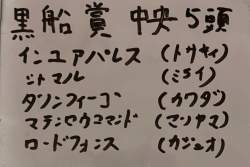 黒船賞 中央5頭
インユアパレス (トサキ)
ジャスマル (ミライ)
ダノンフィーゴ (カワダ)
マテンロウコマンド (マツヤマ)
ロードフォンス (カズオ)